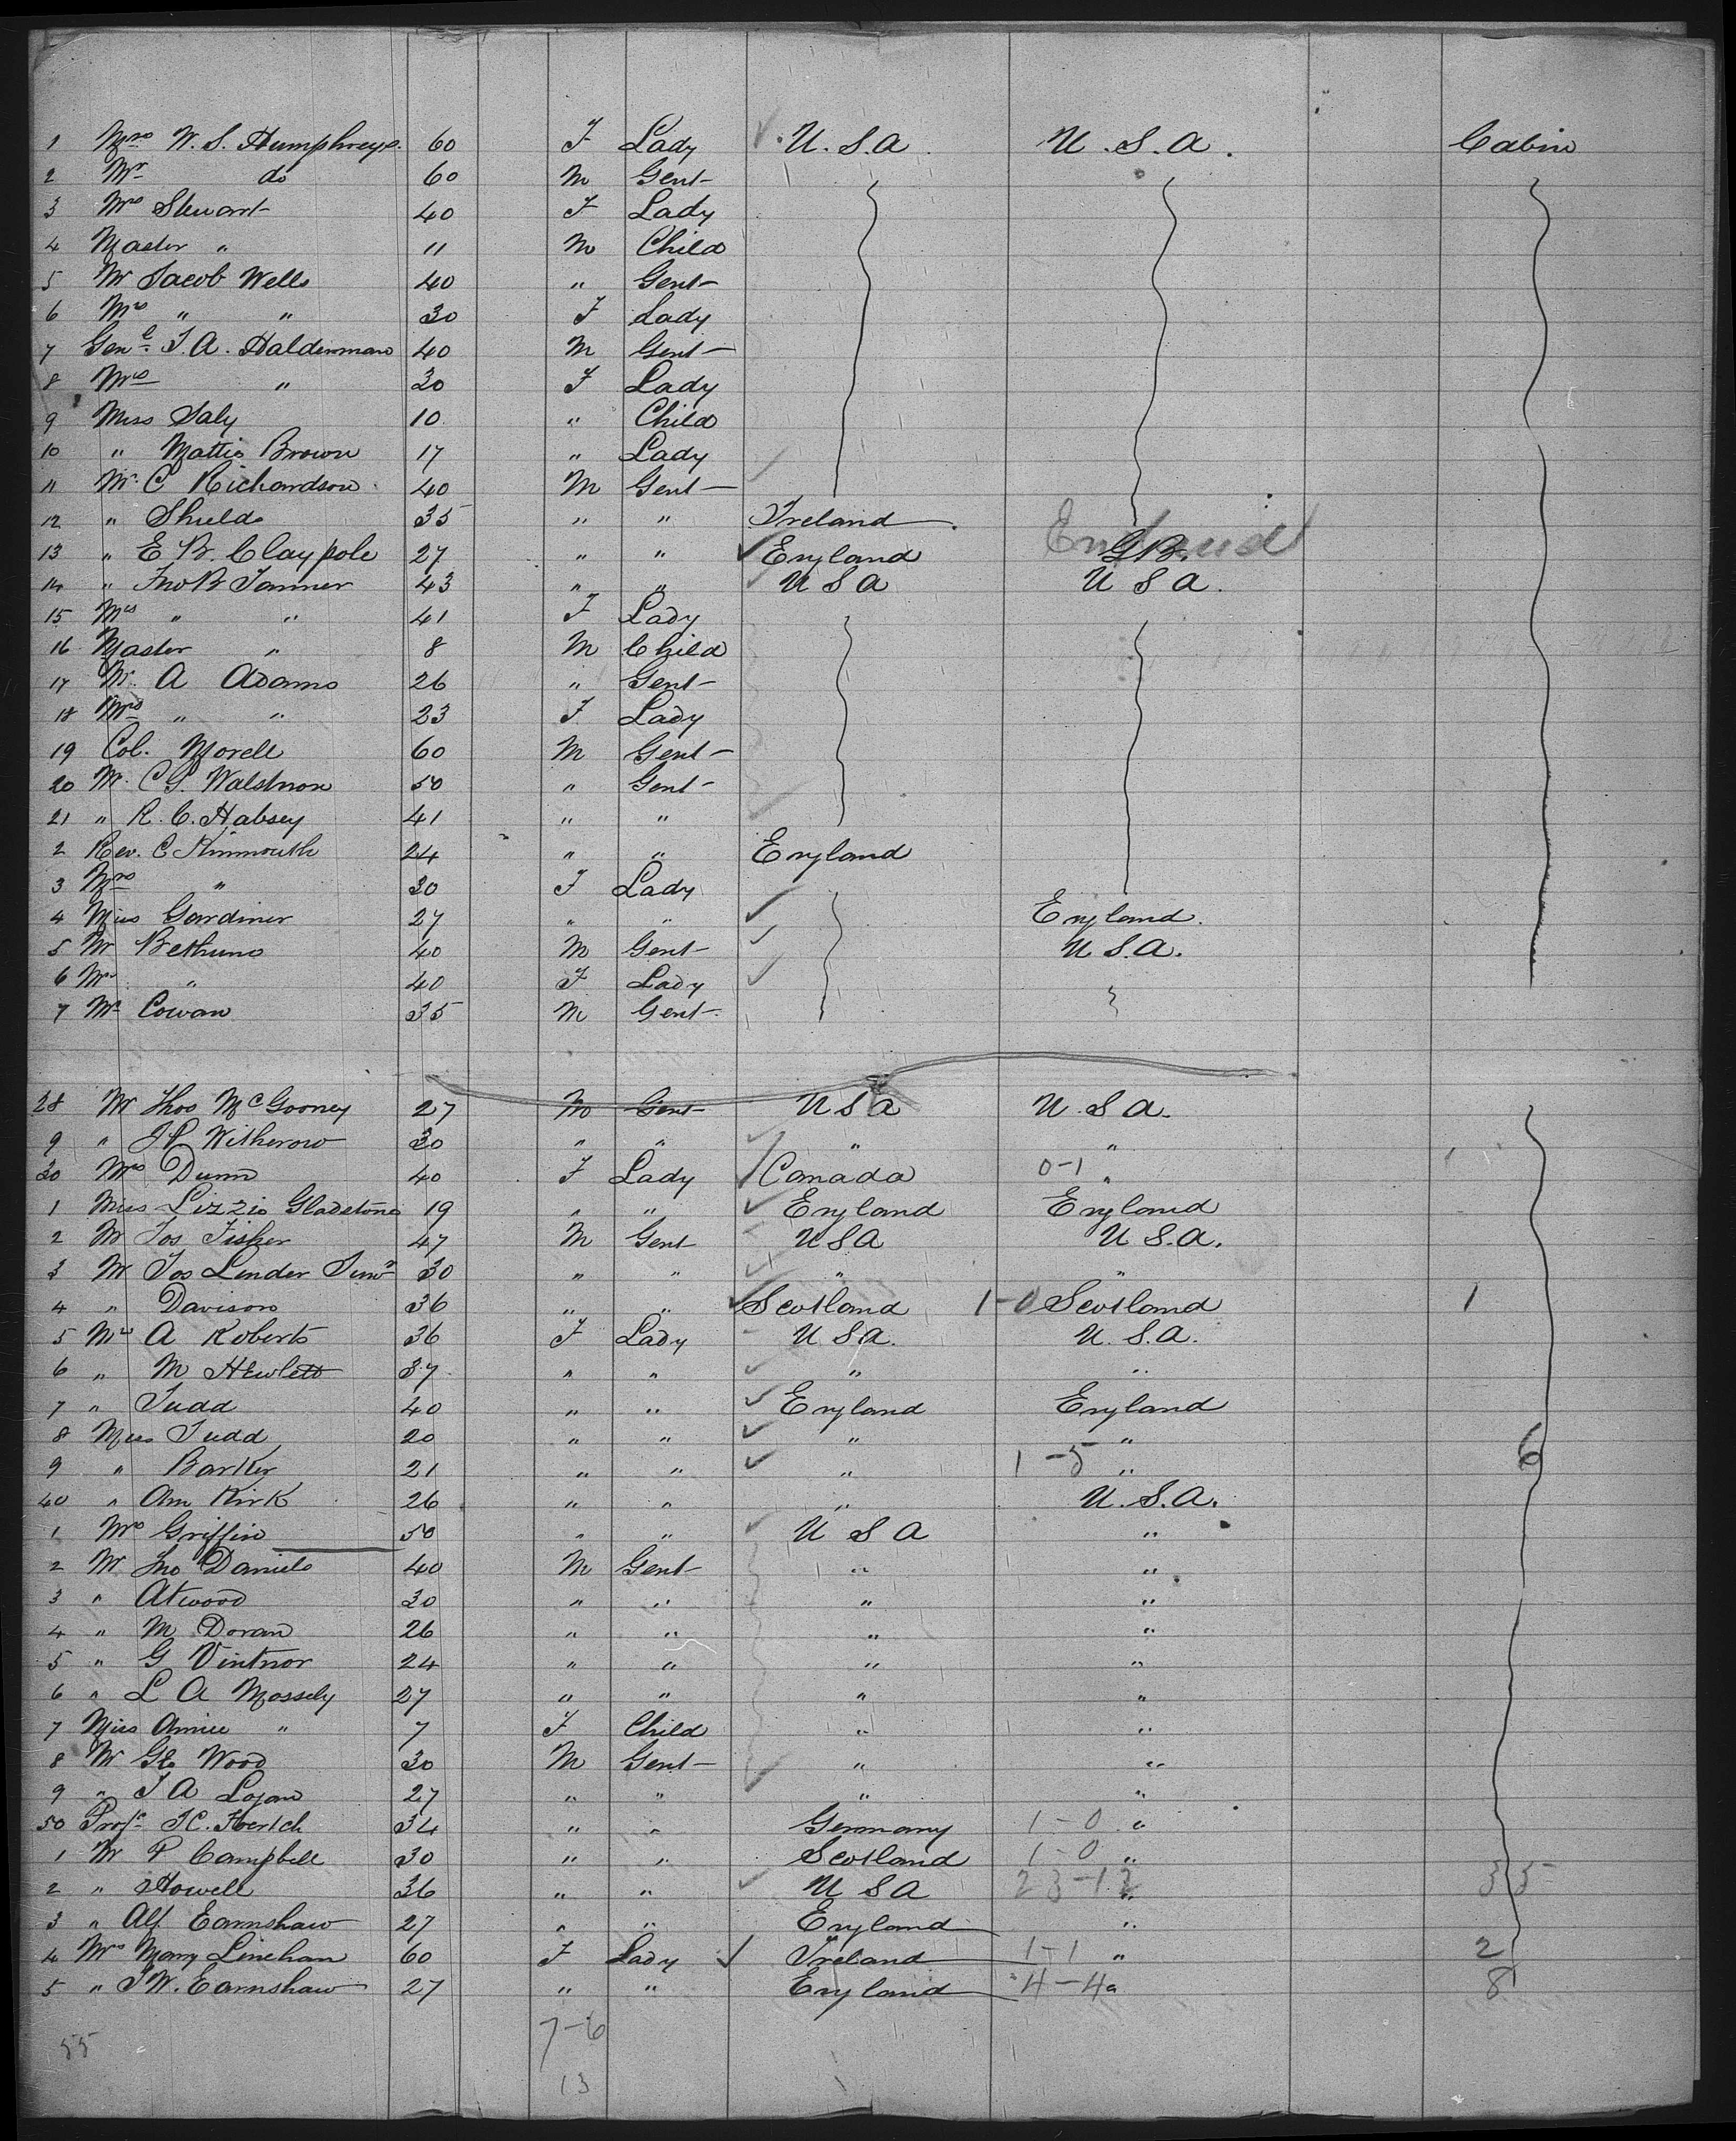 1 Mrs W. S. Humphreys. 60 F Lady U.S.A. U.S.A. Cabin
2 Mr do 60 M Gent
3 Mrs Stewart 40 F Lady
4 Master " 11 M Child
5 Mr Jacob Wells 40 " Gent
6 Mrs " " 30 F Lady
7 Genl. J. A. Halderman 40 M Gent
8 Mrs " 30 F Lady
9 Miss Saly 10 " Child
10 " Mattie Brown 17 " Lady
11 Mr. C Richardson 40 M Gent
12 " Shields 35 " " Ireland
13 " E. B. Claypole 27 " " England G.B. England
14 " Jno B Tanner 43 " " U S A U S A.
15 Mrs " " 41 F Lady
16 Master " 8 M Child
17 Mr. A Adams 26 " Gent
18 Mrs " " 23 F Lady
19 Col. Morell 60 M Gent
20 Mr. C. G. 50 " Gent
21 " R. C. Habsey 41 " "
2 Rev. C Kinmouth 24 " " England
3 Mrs " 30 F Lady
4 Miss Gardiner 27 " " England.
5 Mr Bethune 40 M Gent U.S.A.
6 Mrs " 40 F Lady
7 Mr Cowan 35 M Gent
28 Mr Thos McGooney 27 M Gent U S A U.S.A.
9 " J P Witherow 30 " " " "
30 Mrs Dunn 40 F Lady Canada 0-1 "
1 Miss Lizzie Gladstone 19 " " England England
2 Mr Jos Fisher 47 M Gent U S A U.S.A.
3 Mr Jos Lender Junr 30 " " " "
4 " Davison 36 " " Scotland 1-0 Scotland 1
5 Mrs A Roberts 36 F Lady U S A. U.S.A.
6 " M Hewlett 37 " " " "
7 " Judd 40 " " England England
8 Miss Judd 20 " " " "
9 " Barker 21 " " " 1-5 " 6
40 " Am Kirk 26 " " " U.S.A.
1 Mrs Griffin 50 " " U S A "
2 Mr Jno Daniels 40 M Gent " "
3 " Atwood 30 " " " "
4 " M Doran 26 " " " "
5 " G Vintnor 24 " " " "
6 " L A Mossely 27 " " " "
7 Miss Annie " 7 F Child " "
8 Mr Geo Wood 30 M Gent " "
9 " J A Logan 27 " " " "
50 Profr J C. 34 " " Germany 1-0 "
1 Mr P Campbell 30 " " Scotland 1-0 "
2 " Howell 36 " " U S A 23-12 " 35
3 " Alf Earnshaw 27 " " England "
4 Mrs Mary Linehan 60 F Lady Ireland 1-1 " 2
5 " J W. Earnshaw 27 " " England 4-4 " 8
7-6
55
13